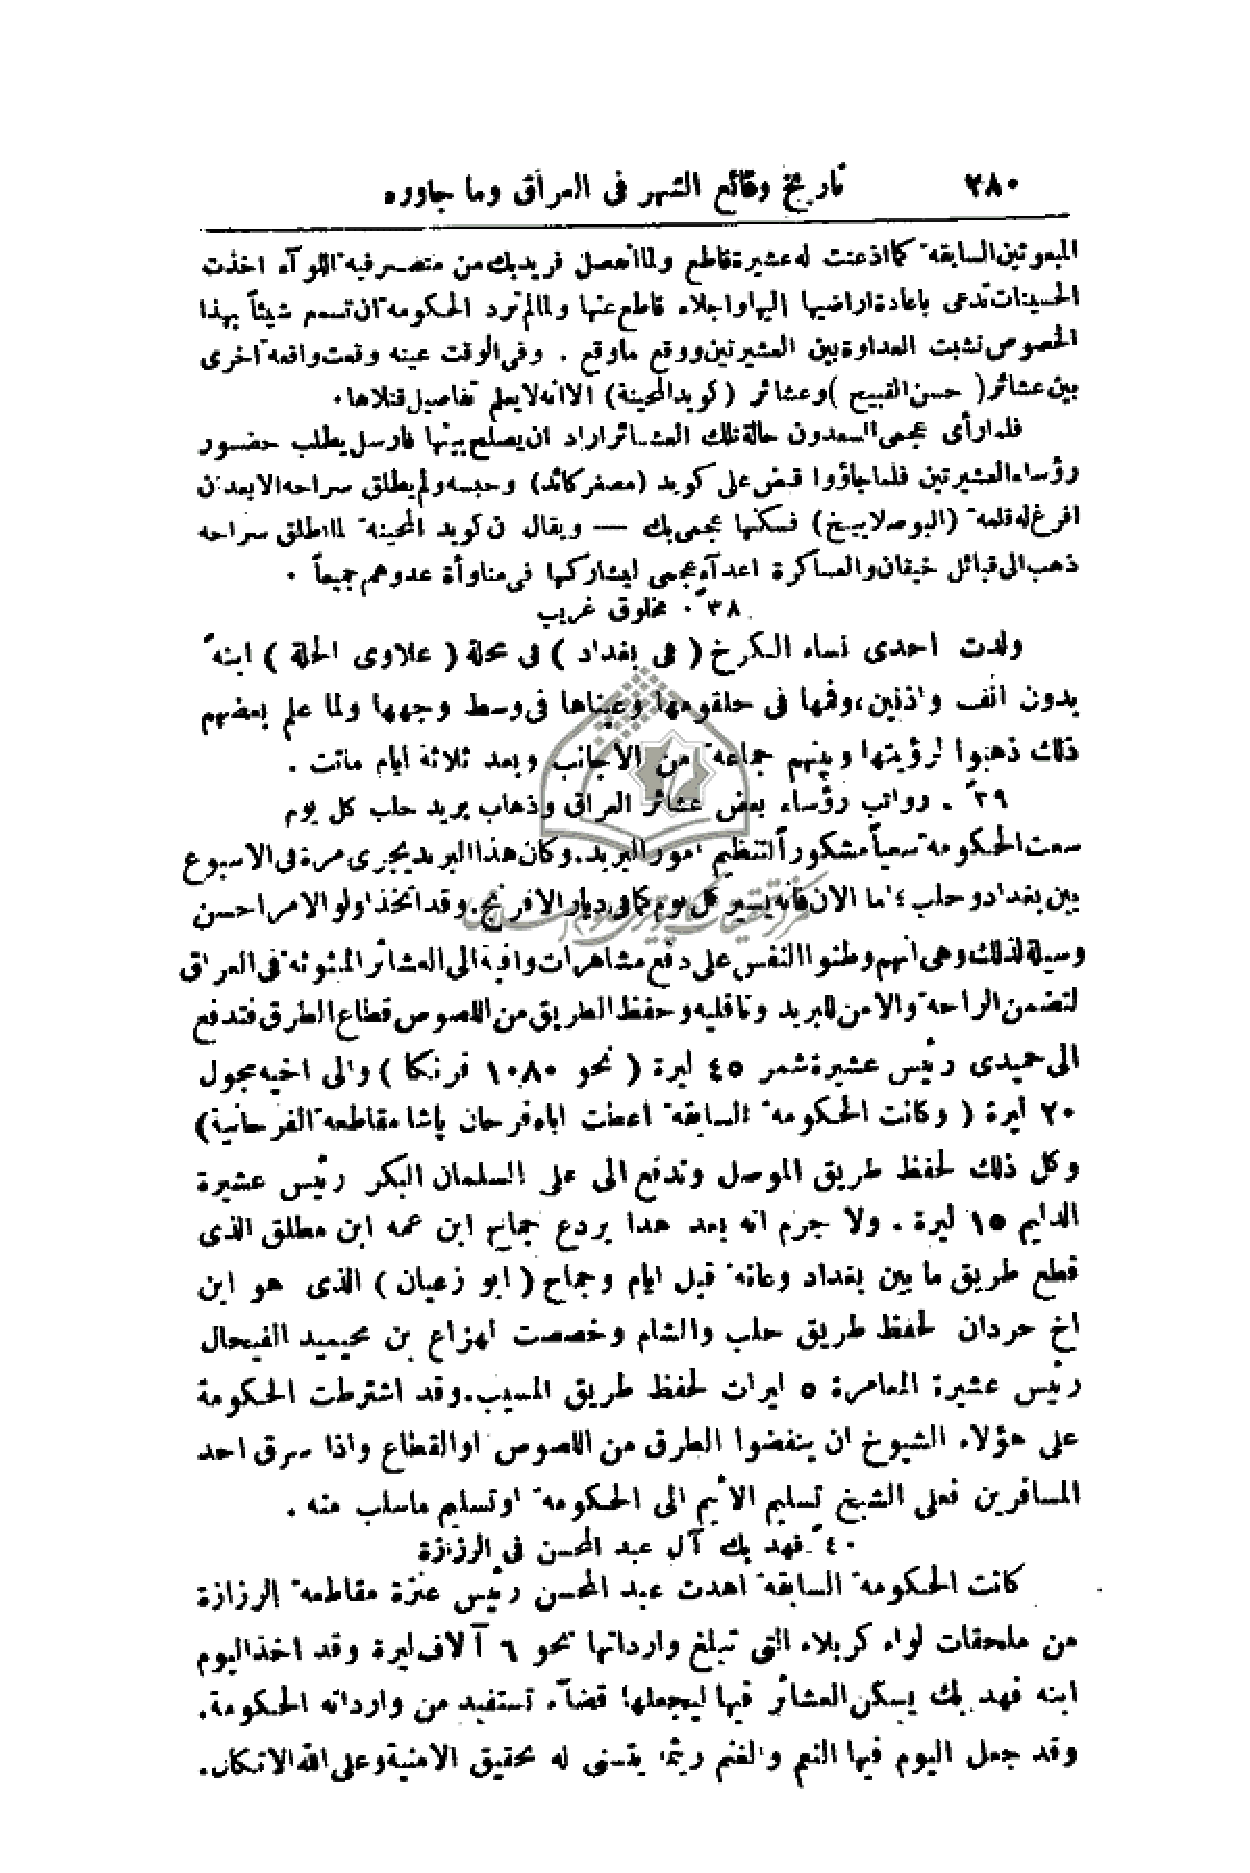 ٢٨٠ تاريخ وقائع الشهر في العراق وما جاوره
المبعوثين السابقة كما اذعنت له عشيرة قاطع ولما انفصل فريد بك من متصرفيه اللوآء اخذت
الحسينات تدعى باعادة اراضيها اليها واجلاء قاطع عنها ولما لم ترد الحكومة ان تسمع شيئاً بهذا
الخصوص نشبت العداوة بين العشيرتين ووقع ما وقع . وفي الوقت عينه وقعت واقعة اخرى
بين عشائر ( حسن القبيح ) وعشائر ( كويد المحينة ) الا انه لا يعلم تفاصيل قتلاها ٠
فلما رأى عجمي السعدون حالة تلك العشائر اراد ان يصلح بينها فارسل يطلب حضور
رؤساء العشيرتين فلما جاؤوا قبض على كويد (مصغر كائد) وحبسه ولم يطلق سراحه الا بعد ان
افرغ له قلعة (البوصلابيخ) فسكنها عجمي بك — ويقال ان كويد المحينة لما اطلق سراحه
ذهب الى قبائل خيقان والعساكرة اعدآء عجمي ليشاركها في مناوأة عدوهم جميعاً ٠
٣٨ً ٠ مخلوق غريب
ولدت احدى نساء الكرخ ( في بغداد ) في محلة ( علاوى الحلة ) ابنة
بدون انف واذنين، وفمها في حلقومها وعيناها في وسط وجهها ولما علم بعضهم
ذلك ذهبوا لرؤيتها وبينهم جماعة من الاجانب وبعد ثلاثة ايام ماتت .
٣٩ً . رواتب رؤساء بعض عشائر العراق وذهاب بريد حلب كل يوم
سعت الحكومة سعياً مشكوراً لتنظيم امور البريد . وكان هذا البريد يجرى مرة في الاسبوع
بين بغداد وحلب ؛ اما الان فانه يسير كل يوم كما في ديار الافرنج . وقد اتخذ اولو الامر احسن
وسيلة لذلك وهي انهم وطنوا النفس على دفع مشاهرات وافية الى العشائر المبثوثة في العراق
لتضمن الراحة والامن للبريد وناقليه وحفظ الطريق من اللصوص قطاع الطرق فتدفع
الى حميدى رئيس عشيرة شمر ٤٥ ليرة ( نحو ١٠٨٠ فرنكا ) والى اخيه مجول
٢٠ ليرة ( وكانت الحكومة السابقة اعطت اباه فرحان باشا مقاطعة الفرحانية)
وكل ذلك لحفظ طريق الموصل وتدفع الى على السلمان البكر رئيس عشيرة
الدليم ١٥ ليرة . ولا جرم انه بعد هذا يردع جماح ابن عمه ابن مطلق الذى
قطع طريق ما بين بغداد وعانة قبل ايام وجماح ( ابو زعيان ) الذى هو ابن
اخ حردان لحفظ طريق حلب والشام وخصصت لهزاع بن محيميد الفيحال
رئيس عشيرة المعامرة ٥ ليرات لحفظ طريق المسيب . وقد اشترطت الحكومة
على هؤلاء الشيوخ ان ينفضوا الطرق من اللصوص او القطاع واذا سرق احد
المسافرين فعلى الشيخ تسليم الأثيم الى الحكومة او تسليم ماسلب منه .
٤٠ً . فهد بك آل عبد المحسن في الرزازة
كانت الحكومة السابقة اهدت عبد المحسن رئيس عنزة مقاطعة الرزازة
من ملحقات لواء كربلاء التي تبلغ وارداتها نحو ٦ آلاف ليرة وقد اخذ اليوم
ابنه فهد بك يسكن العشائر فيها ليجعلها قضآء تستفيد من وارداته الحكومة .
وقد جعل اليوم فيها النعم والغنم ريثما يتسنى له تحقيق الامنية وعلى الله الاتكال .